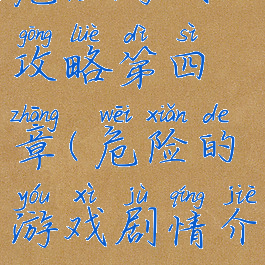 gōng lüè dì sì
攻略第四
zhāng wēi xiǎn de
章(危险的
yóu xì jù qíng jiè
游戏剧情介